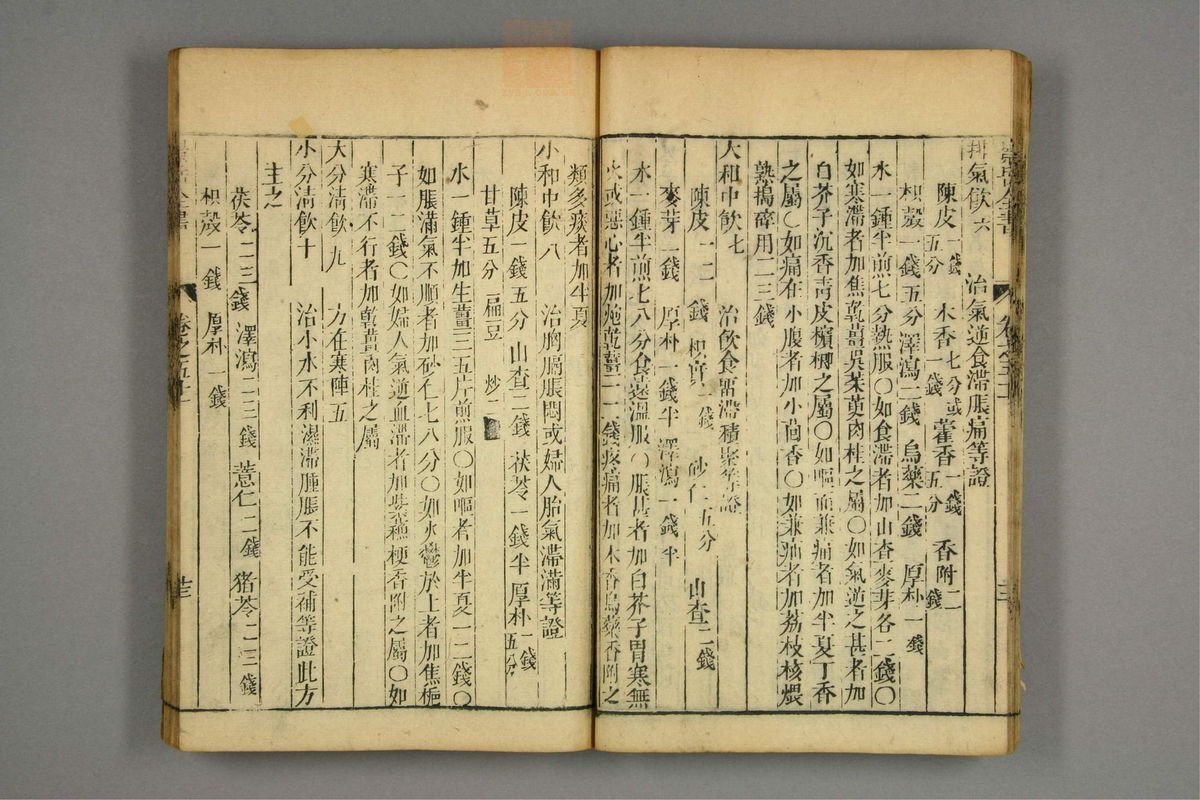 排氣飲六 治氣逆食滯脹痛等證
陳皮一錢五分 木香七分或一錢 藿香一錢五分 香附二錢
枳殼一錢五分 澤瀉二錢 烏藥二錢 厚朴一錢
水一鍾半煎七分熱服〇如食滯者加山查麥芽各二錢〇
如寒滯者加焦乾薑吳茱萸肉桂之屬〇如氣逆之甚者加
白芥子沉香青皮檳榔之屬〇如嘔而兼痛者加半夏丁香
之屬〇如痛在小腹者加小茴香〇如兼疝者加荔枝核煨
熟搗碎用二三錢
大和中飲七 治飲食畱滯積聚等證
陳皮一二錢 枳實一錢 砂仁五分 山查二錢
麥芽一錢 厚朴一錢半 澤瀉一錢半
水一鍾半煎七八分食遠溫服〇脹甚者加白芥子胃寒無
火或惡心者加炮乾薑一二錢疼痛者加木香烏藥香附之
類多痰者加半夏
小和中飲八 治胸膈脹悶或婦人胎氣滯滿等證
陳皮一錢五分 山查二錢 茯苓一錢半 厚朴一錢五分
甘草五分 扁豆炒二
水一鍾半加生薑三五片煎服〇如嘔者加半夏一二錢〇
如脹滿氣不順者加砂仁七八分〇如火鬱於上者加焦梔
子一二錢〇如婦人氣逆血滯者加紫蘇梗香附之屬〇如
寒滯不行者加乾薑肉桂之屬
大分清飲九 方在寒陣五
小分清飲十 治小水不利濕滯腫脹不能受補等證此方
主之
茯苓二三錢 澤瀉二三錢 薏仁二錢 猪苓二三錢
枳殼一錢 厚朴一錢
卷之五十一